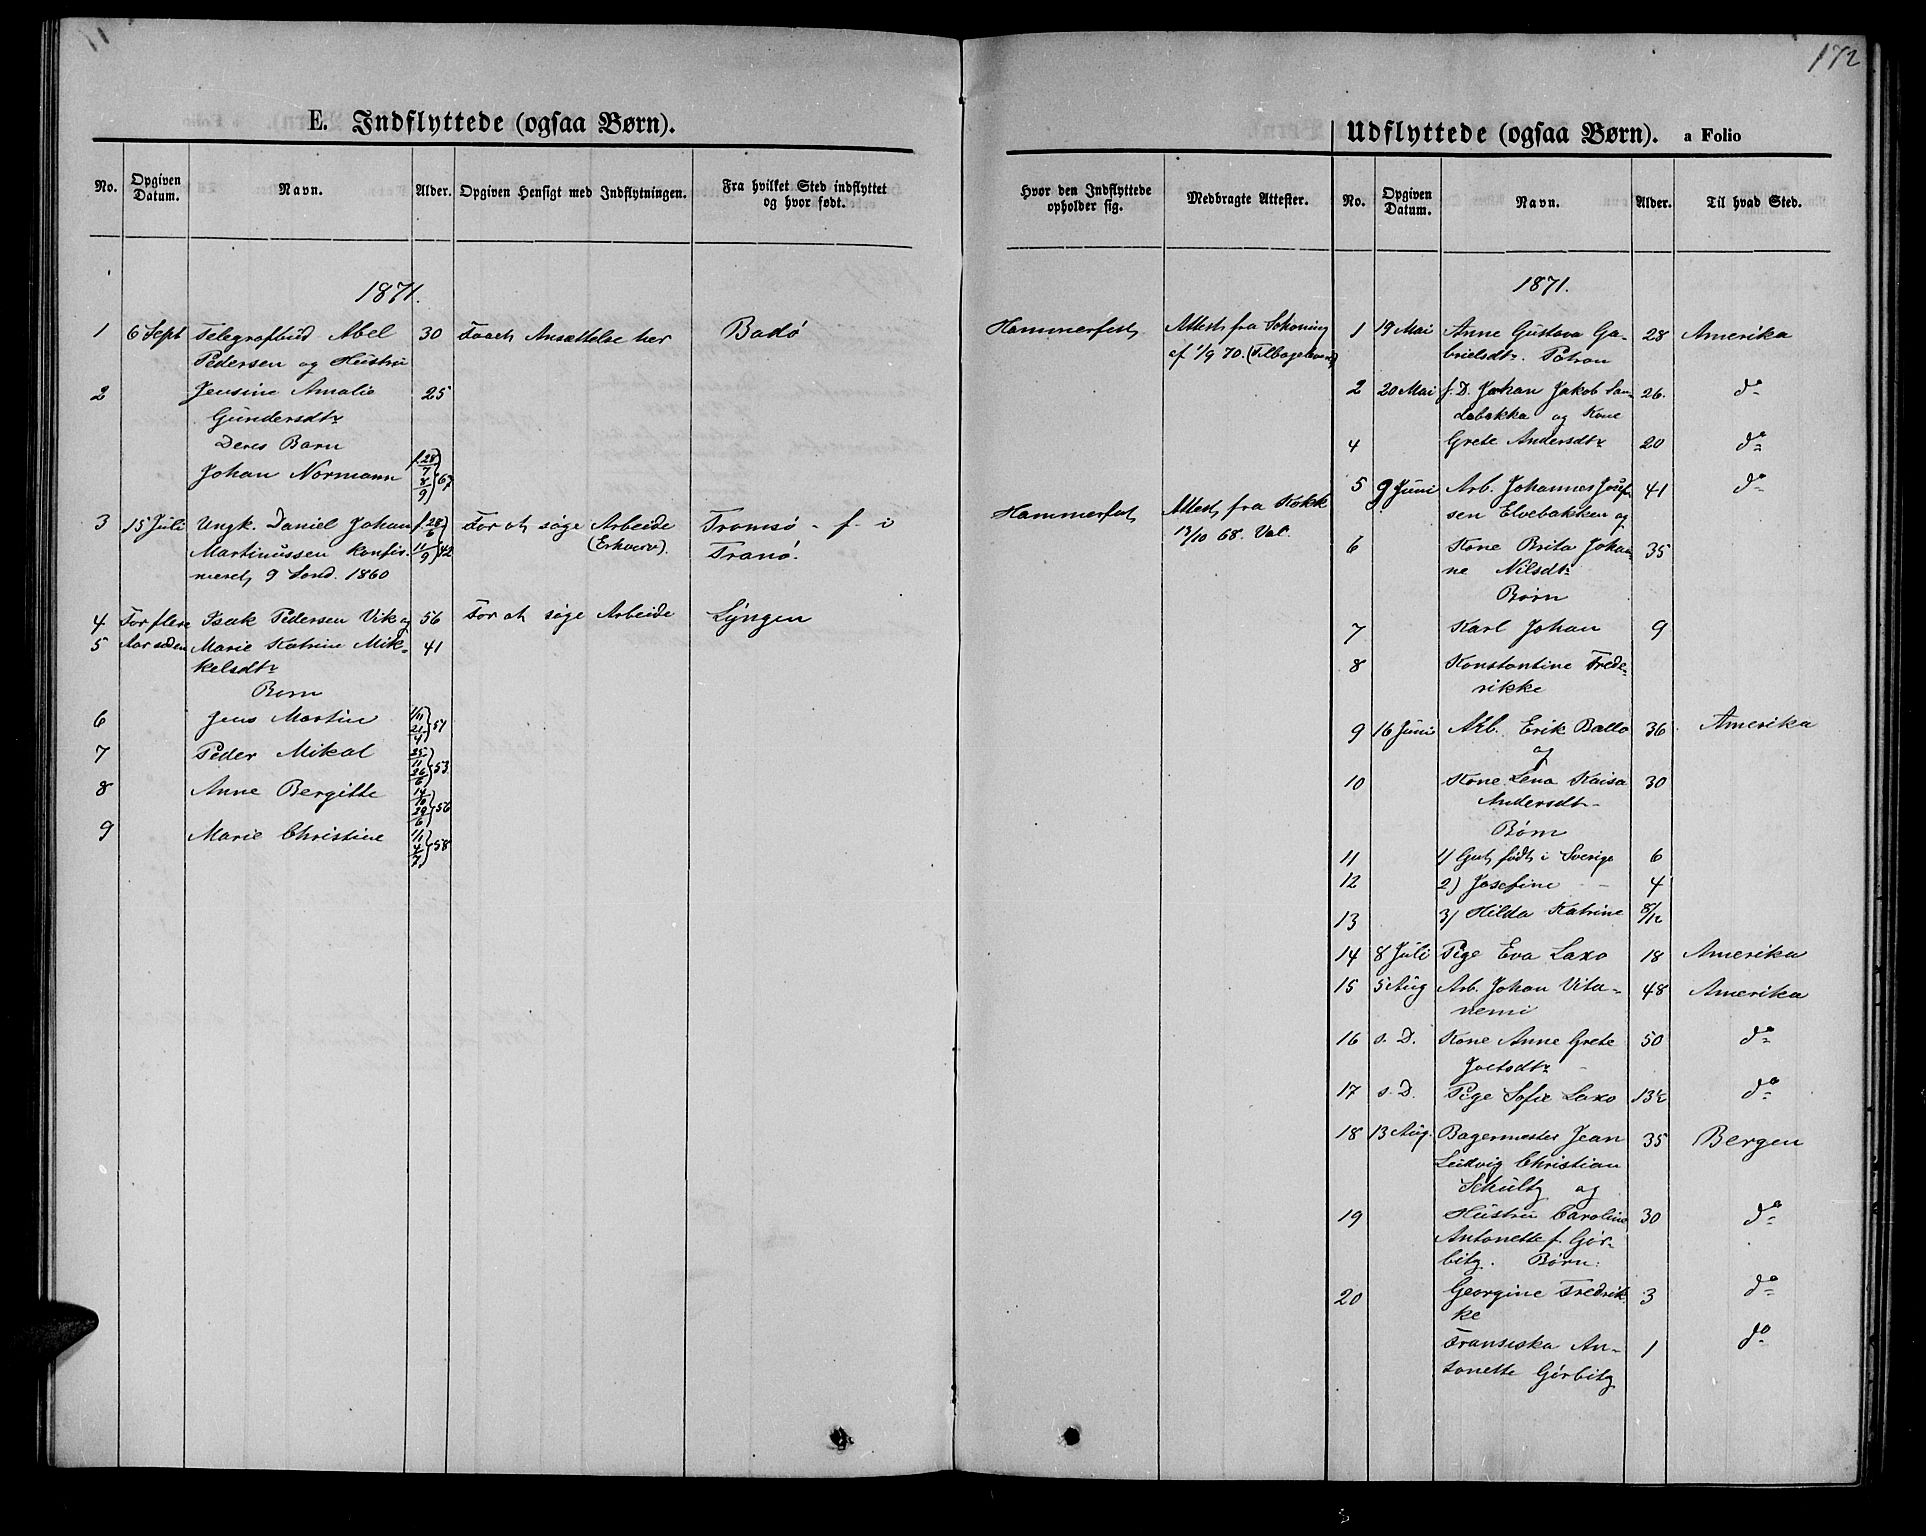 172
E. Indflyttede (ogsaa Børn).
No.
Opgiven Datum.
Navn.
Alder.
Opgiven Hensigt med Indflytningen.
Fra hvilket Sted indflyttet og hvor født.
1871.
1 6 Sept Telegrafbud Abel 30 Faaet Ansættelse her Badø
Pedersen og Hustru
2 Jensine Amalie 25
Gundersdtr
Deres Barn
Johan Normann f. 28/7 8/9 67
3 15 Juli Ungk. Daniel Johan f. 28/6 For at søge Arbeide Tromsø - f. i
Martinussen konfir- 11/9 42 (Erhverv). Tranø.
meret 9 Sønd. 1860
4 For flere Isak Pedersen Vik og 56 For at søge Arbeide Lyngen
5 Aar siden Marie Katrine Mik- 41
kelsdtr
Børn
6 Jens Martin 1/11 21/4 51
7 Peder Mikal 25/11 26/6 53
8 Anne Bergitte 14/10 29/6 56
9 Marie Christine 1/1 4/7 58
Hvor den Indflyttede opholder sig.
Medbragte Attester.
Hammerfest Attest fra Schøning
af 1/9 70. (Tilbagelevert)
Hammerfest Attest fra Kokk
13/10 68. Val.
Udflyttede (ogsaa Børn). a Folio
No.
Opgiven Datum.
Navn.
Alder.
Til hvad Sted.
1871.
1 19 Mai Anne Gustava Ga- 28 Amerika
brielsdtr. Patron
2 20 Mai f. D. Johan Jakob San- 26. do
dabakka og Kone
4 Grete Andersdtr 20 do
5 9 Juni Arb. Johannes Josef- 41 do
sen Elvebakken og
6 Kone Brita Johan- 35
ne Nilsdtr
Børn
7 Karl Johan 9
8 Konstantine Frede-
rikke
9 16 Juni Arb. Erik Ballo 36 Amerika
og
10 Kone Lena Kaisa 30
Andersdtr
Børn
11 1) Gut født i Sverige 6
12 2) Josefine - 4
13 3) Hilda Katrine 8/12
14 8 Juli Pige Eva Laxo 18 Amerika
15 5 Aug Arb. Johan Vita- 48 Amerika
nemi
16 s. D. Kone Anne Grete 50 do
17 s. D. Pige Sofie Laxo 13½ do
18 13 Aug. Bagermester Jean 35 Bergen
Ludvig Christian
Schultz og
19 Hustru Caroline 30 do
Antonette f. Gør-
bitz. Børn:
20 Georgine Fredrik- 3 do
ke
Fransiska An- 1 do
tonette Gørbitz